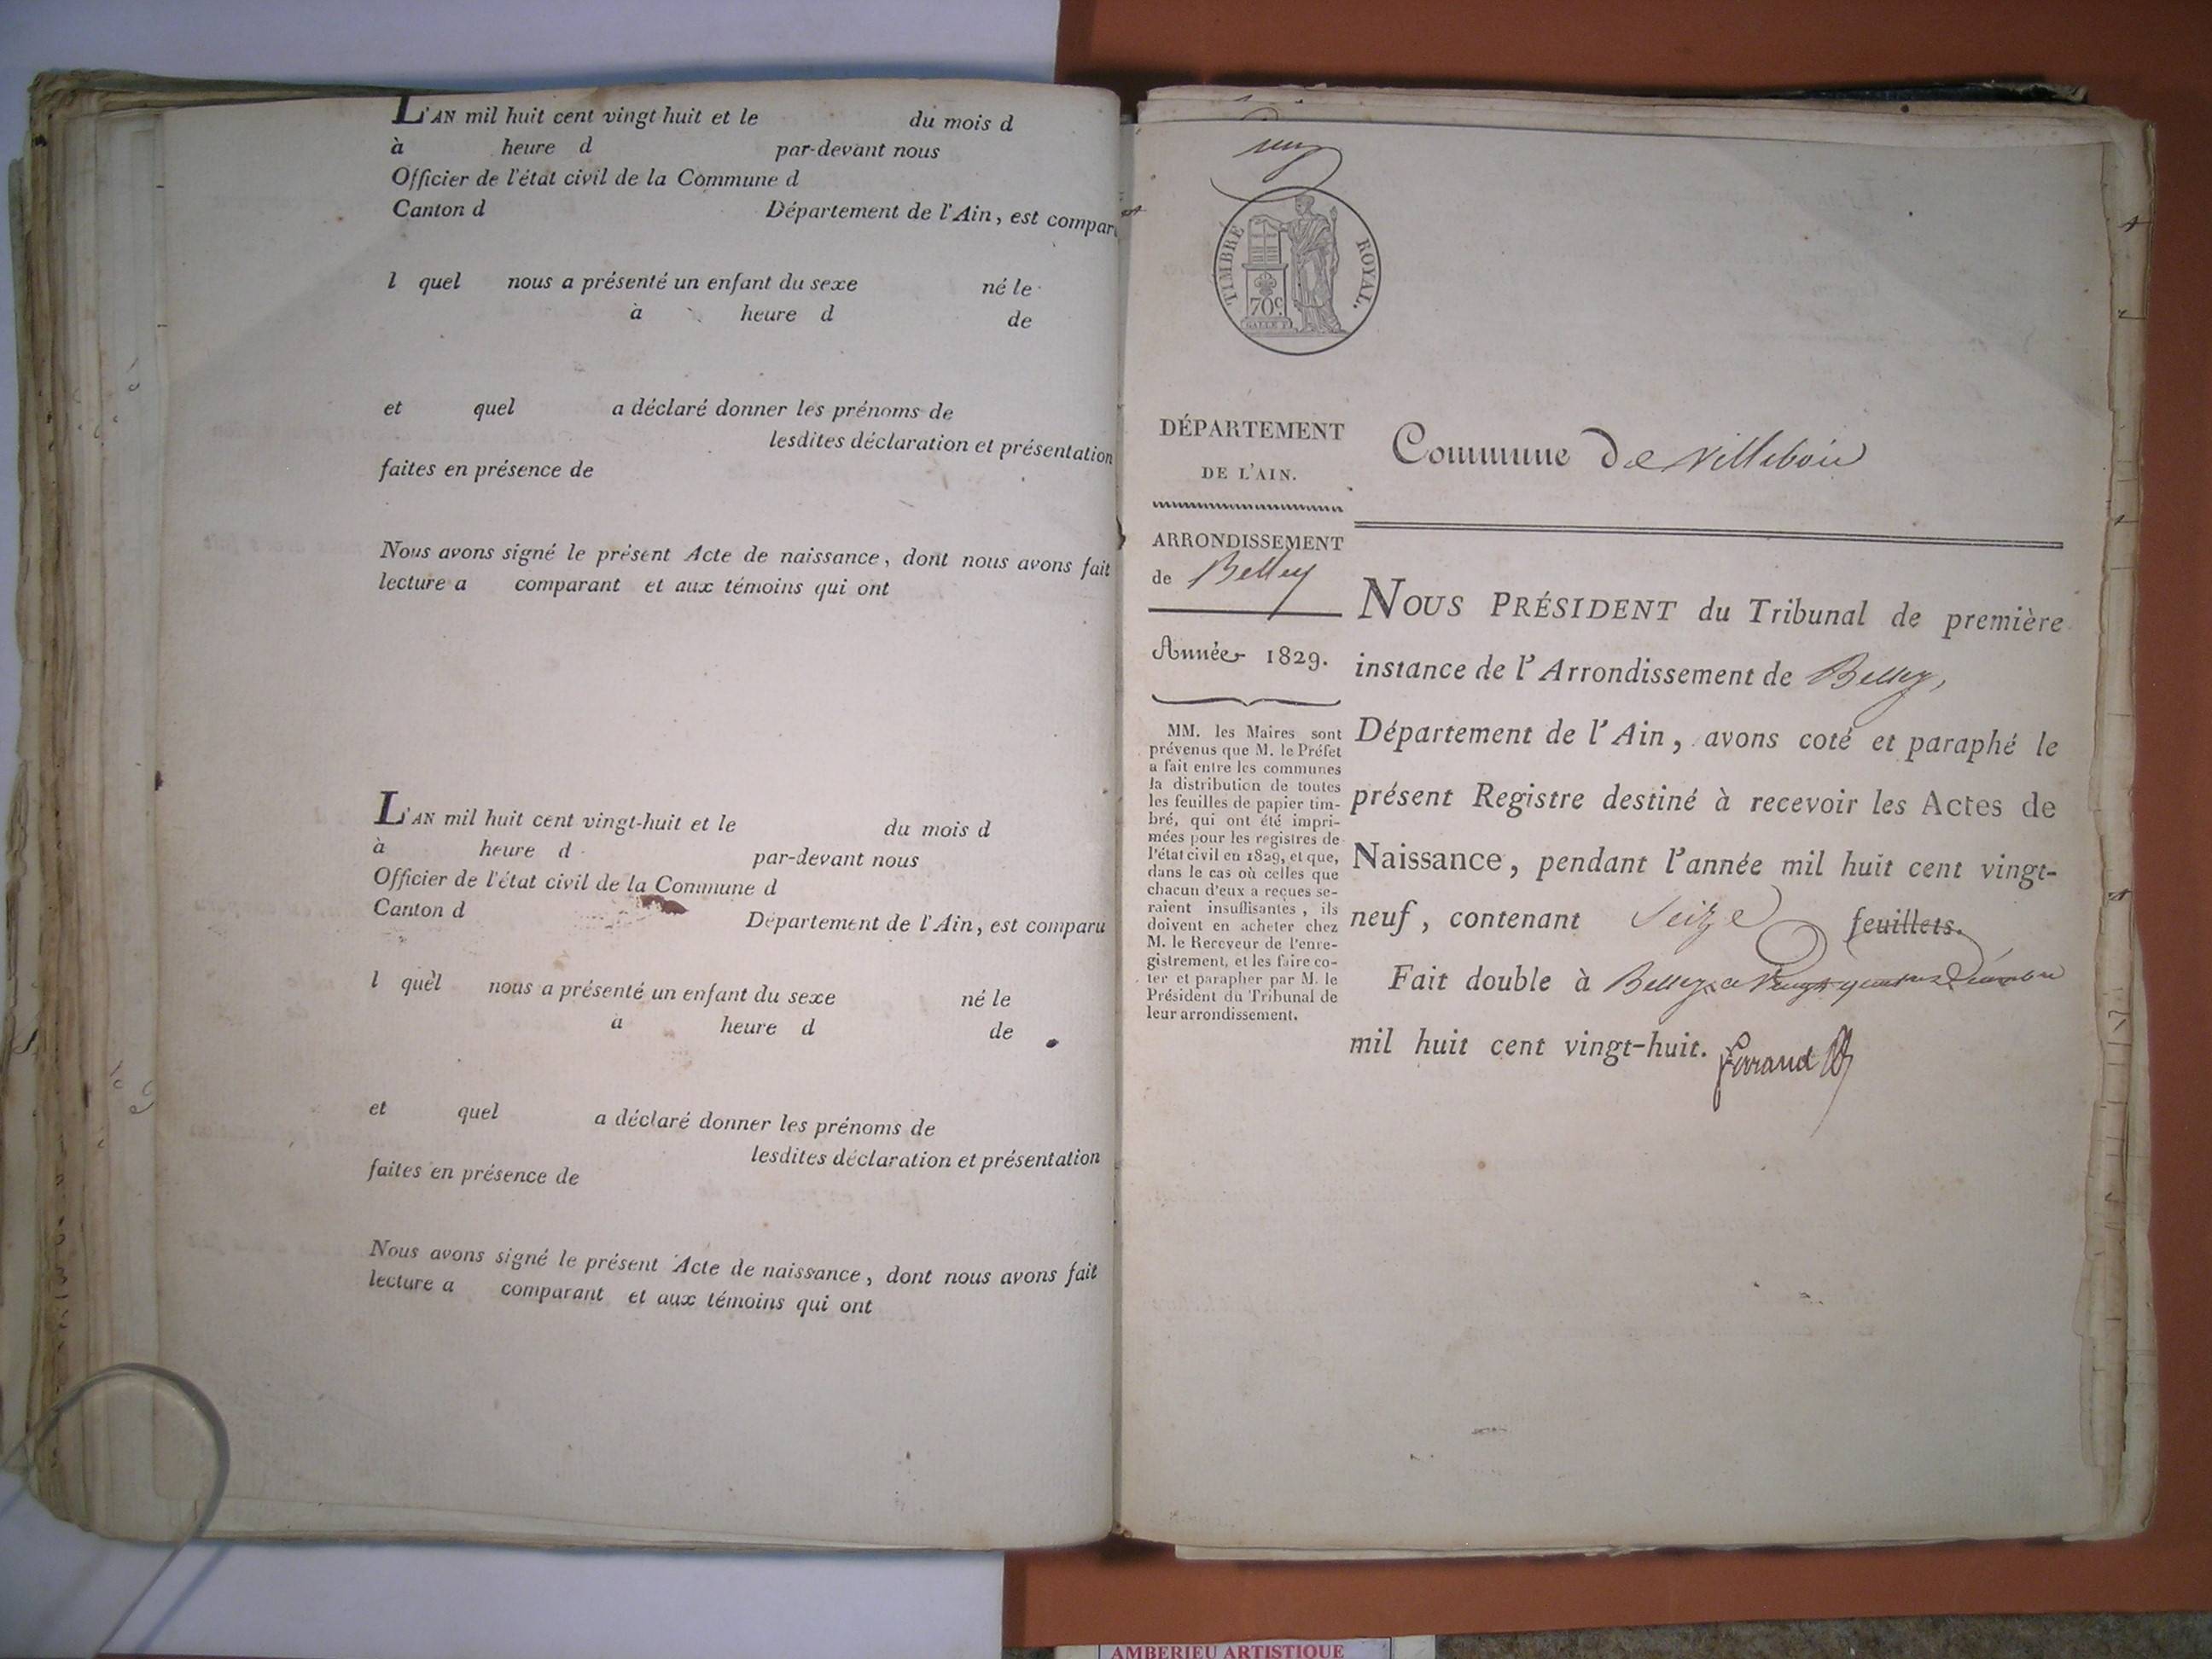 L'AN mil huit cent vingt huit et le du mois d
à heure d par-devant nous
Officier de l'état civil de la Commune d
Canton d Département de l'Ain, est compar
l quel nous a présenté un enfant du sexe né le
à heure d de
et quel a déclaré donner les prénoms de
lesdites déclaration et présentation
faites en présence de
Nous avons signé le présent Acte de naissance, dont nous avons fait
lecture a comparant et aux témoins qui ont
L'AN mil huit cent vingt-huit et le du mois d
à heure d par-devant nous
Officier de l'état civil de la Commune d
Canton d Département de l'Ain, est comparu
l quel nous a présenté un enfant du sexe né le
à heure d de
et quel a déclaré donner les prénoms de
lesdites déclaration et présentation
faites en présence de
Nous avons signé le présent Acte de naissance, dont nous avons fait
lecture a comparant et aux témoins qui ont
TIMBRE ROYAL.
70c.
GALLE F.
DÉPARTEMENT
DE L'AIN.
ARRONDISSEMENT
de Belley
Année 1829.
MM. les Maires sont
prévenus que M. le Préfet
a fait entre les communes
la distribution de toutes
les feuilles de papier tim-
bré, qui ont été impri-
mées pour les registres de
l'état civil en 1829, et que,
dans le cas où celles que
chacun d'eux a reçues se-
raient insuffisantes, ils
doivent en acheter chez
M. le Receveur de l'enre-
gistrement, et les faire co-
ter et parapher par M. le
Président du Tribunal de
leur arrondissement.
Commune De Villebois
NOUS PRÉSIDENT du Tribunal de première
instance de l'Arrondissement de Belley,
Département de l'Ain, avons coté et paraphé le
présent Registre destiné à recevoir les Actes de
Naissance, pendant l'année mil huit cent vingt-
neuf, contenant Seize feuillets.
Fait double à Belley ce Vingt quatre Décembre
mil huit cent vingt-huit. Ferrand
AMBERIEU ARTISTIQUE